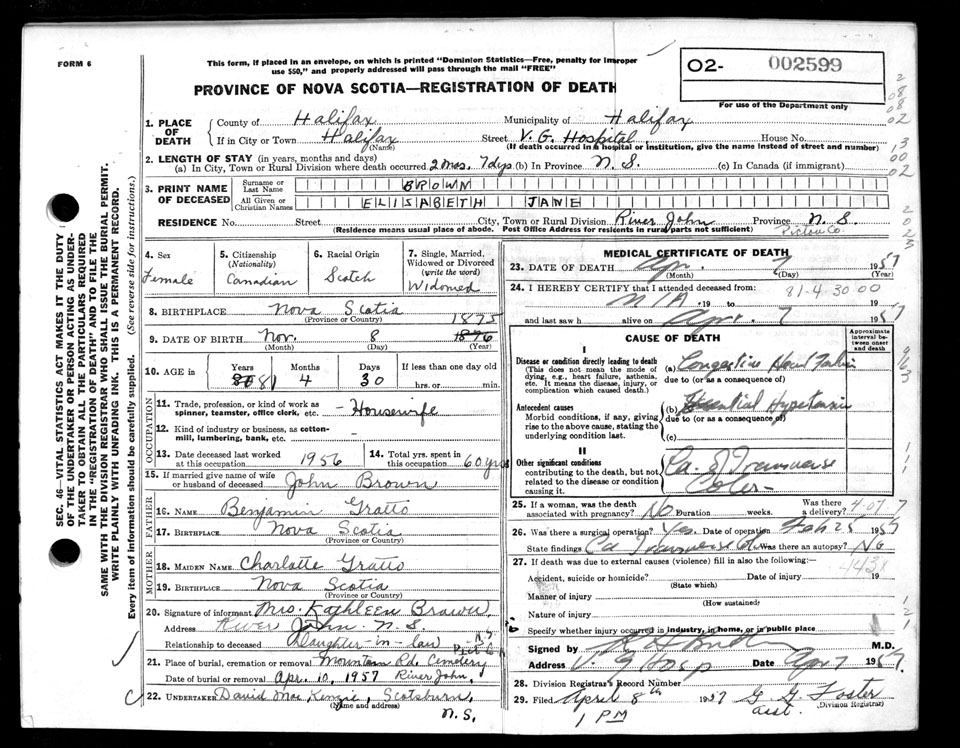 FORM 6
This form, if placed in an envelope, on which is printed "Dominion Statistics—Free, penalty for improper
use $50," and properly addressed will pass through the mail "FREE"
PROVINCE OF NOVA SCOTIA—REGISTRATION OF DEATH
O2- 002599
For use of the Department only
SEC. 46—VITAL STATISTICS ACT MAKES IT THE DUTY
OF THE UNDERTAKER OR PERSON ACTING AS UNDER-
TAKER TO OBTAIN ALL THE PARTICULARS REQUIRED
IN THE "REGISTRATION OF DEATH" AND TO FILE THE
SAME WITH THE DIVISION REGISTRAR WHO SHALL ISSUE THE BURIAL PERMIT.
WRITE PLAINLY WITH UNFADING INK. THIS IS A PERMANENT RECORD.
Every item of information should be carefully supplied. (See reverse side for instructions.)
1. PLACE OF DEATH
County of Halifax Municipality of Halifax
If in City or Town Halifax Street V. G. Hospital House No.
(Name) (If death occurred in a hospital or institution, give the name instead of street and number)
2. LENGTH OF STAY (in years, months and days)
(a) In City, Town or Rural Division where death occurred 2 mos. 7 dys (b) In Province N. S. (c) In Canada (if immigrant)
3. PRINT NAME OF DECEASED
Surname or Last Name BROWN
All Given or Christian Names ELISABETH JANE
RESIDENCE No. Street City, Town or Rural Division River John Province N. S.
(Residence means usual place of abode. Post Office Address for residents in rural parts not sufficient) Pictou Co.
4. Sex Female
5. Citizenship (Nationality) Canadian
6. Racial Origin Scotch
7. Single, Married, Widowed or Divorced (write the word) Widowed
8. BIRTHPLACE Nova Scotia
(Province or Country)
9. DATE OF BIRTH Nov. 8 1876 1875
(Month) (Day) (Year)
10. AGE in Years 81 Months 4 Days 30 If less than one day
hrs. or min.
OCCUPATION
11. Trade, profession, or kind of work as
spinner, teamster, office clerk, etc. - Housewife
12. Kind of industry or business, as cotton-
mill, lumbering, bank, etc.
13. Date deceased last worked
at this occupation 1956
14. Total yrs. spent in
this occupation 60 yrs
15. If married give name of wife
or husband of deceased John Brown
FATHER
16. NAME Benjamin Gratto
17. BIRTHPLACE Nova Scotia
(Province or Country)
MOTHER
18. MAIDEN NAME Charlotte Gratto
19. BIRTHPLACE Nova Scotia
(Province or Country)
20. Signature of informant Mrs. Kathleen Brown.
Address River John N. S.
Relationship to deceased Daughter-in-law
21. Place of burial, cremation or removal Mountain Rd. Cemetery
Date of burial or removal Apr. 10, 1957 River John,
22. UNDERTAKER David MacKenzie, Scotsburn,
(Name and address)
N. S.
MEDICAL CERTIFICATE OF DEATH
23. DATE OF DEATH Apr. 7 1957
(Month) (Day) (Year)
24. I HEREBY CERTIFY that I attended deceased from: 81-4 30 00
N/A 19 to 19
and last saw h alive on Apr. 7 1957
CAUSE OF DEATH
Approximate interval between onset and death
I
Disease or condition directly leading to death
(This does not mean the mode of
dying, e.g., heart failure, asthenia,
etc. It means the disease, injury, or
complication which caused death.)
(a) Congestive Heart Failure
due to (or as a consequence of)
Antecedent causes
Morbid conditions, if any, giving
rise to the above cause, stating the
underlying condition last.
(b) Essential Hypertension
due to (or as a consequence of)
(c)
II
Other significant conditions
contributing to the death, but not
related to the disease or condition
causing it.
Ca. of Transverse
Colon
25. If a woman, was the death
associated with pregnancy? No Duration weeks. Was there a delivery?
26. Was there a surgical operation? Yes. Date of operation Feb 25 1957
State findings Ca Transverse Colon Was there an autopsy? No
27. If death was due to external causes (violence) fill in also the following:-
Accident, suicide or homicide? Date of injury 19
(State which)
Manner of injury
(How sustained)
Nature of injury
Specify whether injury occurred in industry, in home, or in public place
Signed by M.D.
Address V. G Hosp Date Apr 7 1957.
28. Division Registrar's Record Number
29. Filed April 8th 1957 G. G. Foster
1 PM asst. (Division Registrar)